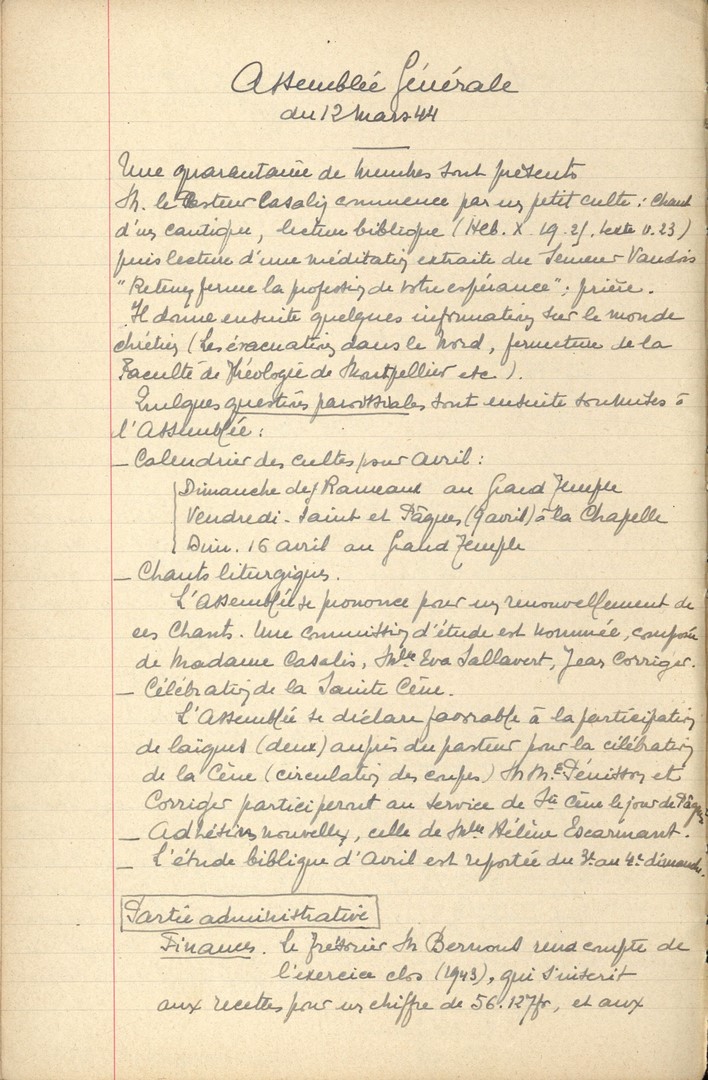 Assemblée Générale
du 12 Mars 44
Une quarantaine de membres sont présents
M. le Pasteur Casalis commence par un petit culte : Chant
d'un cantique, lecture biblique (Héb. X. 19-25, texte v. 23)
puis lecture d'une méditation extraite du Semeur Vaudois
"Retenez ferme la profession de votre espérance" ; prière.
Il donne ensuite quelques informations sur le monde
chrétien (Les évacuations dans le Nord, fermeture de la
Faculté de Théologie de Montpellier etc).
Quelques questions paroissiales sont ensuite soumises à
l'Assemblée :
— Calendrier des cultes pour Avril :
Dimanche des Rameaux au Grand Temple
Vendredi-Saint et Pâques (9 avril) à la Chapelle
Dim. 16 avril au Grand Temple
— Chants liturgiques.
L'Assemblée se prononce pour un renouvellement de
ces Chants. Une commission d'étude est nommée, composée
de Madame Casalis, Melle Eva Sallavert, Jean Corriger.
— Célébration de la Sainte Cène.
L'Assemblée se déclare favorable à la participation
de laïques (deux) auprès du pasteur pour la célébration
de la Cène (circulation des coupes) MM. Pénisson et
Corriger participeront au service de Ste Cène le jour de Pâques
— Adhésions nouvelles, celle de Melle Hélène Escarmant.
— L'étude biblique d'Avril est reportée du 3e au 4e dimanche.
Partie administrative
Finances. Le Trésorier M Bernoul rend compte de
l'exercice clos (1943), qui s'inscrit
aux recettes pour un chiffre de 56.127fr, et aux